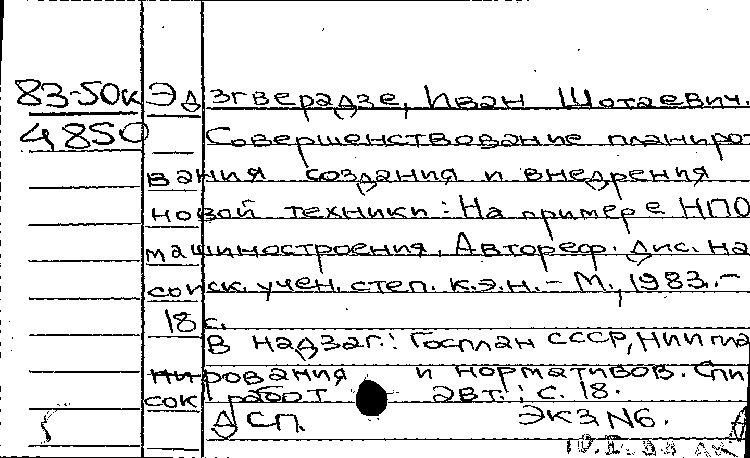 83-50к Эдзгверадзе, Иван Шотаевич.
4850 Совершенствование планиро-
вания создания и внедрения
новой техники: На примере НПО
машиностроения. Автореф. дис. на
соиск. учен. степ. к.э.н. - М., 1983. -
18 с.
В надзаг.: Госплан СССР, НИИ пла-
нирования и нормативов. Спи-
сок работ авт.: с. 18.
ДСП. Экз. N6.